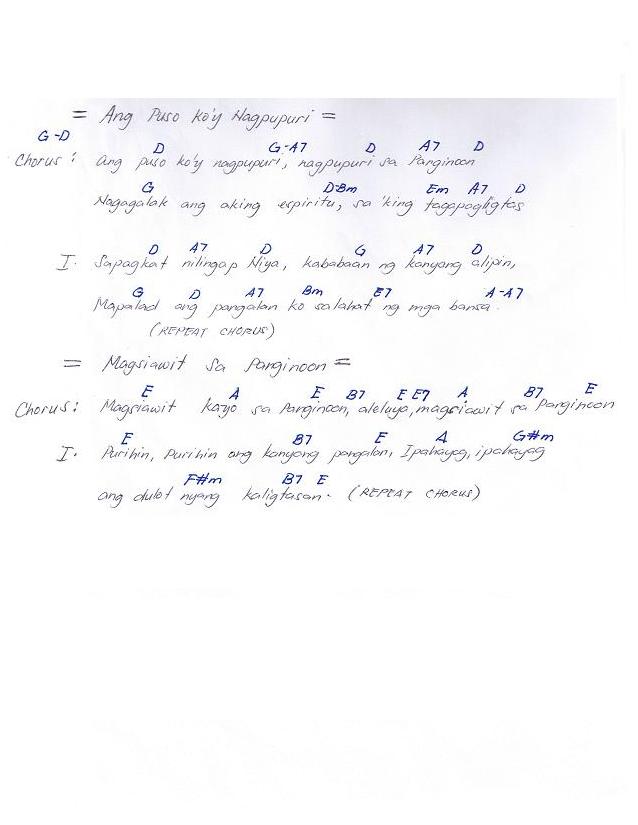 = Ang Puso ko'y Nagpupuri =
G-D
D G-A7 D A7 D
Chorus: Ang puso ko'y nagpupuri, nagpupuri sa Panginoon
G D-Bm Em A7 D
Nagagalak ang aking espiritu, sa 'king tagapagligtas
D A7 D G A7 D
I. Sapagkat nilingap Niya, kababaan ng kanyang alipin,
G D A7 Bm E7 A-A7
Mapalad ang pangalan ko salahat ng mga bansa.
(REPEAT CHORUS)
= Magsiawit sa Panginoon =
E A E B7 E E7 A B7 E
Chorus: Magsiawit kayo sa Panginoon, aleluya, magsiawit sa Panginoon
E B7 E A G#m
I. Purihin, purihin ang kanyang pangalan, Ipahayag, ipahayag
F#m B7 E
ang dulot nyang kaligtasan. (REPEAT CHORUS)